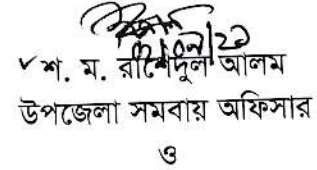 শ. ম. রাশেদুল আলম
উপজেলা সমবায় অফিসার
ও